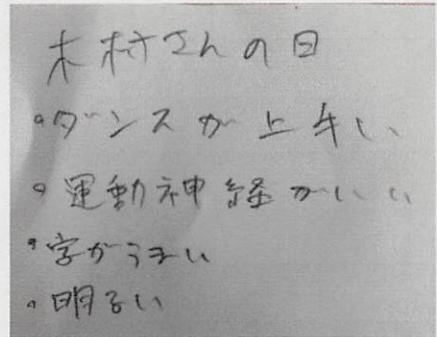 木村さんの日
・ダンスが上手い
・運動神経がいい
・字がうまい
・明るい